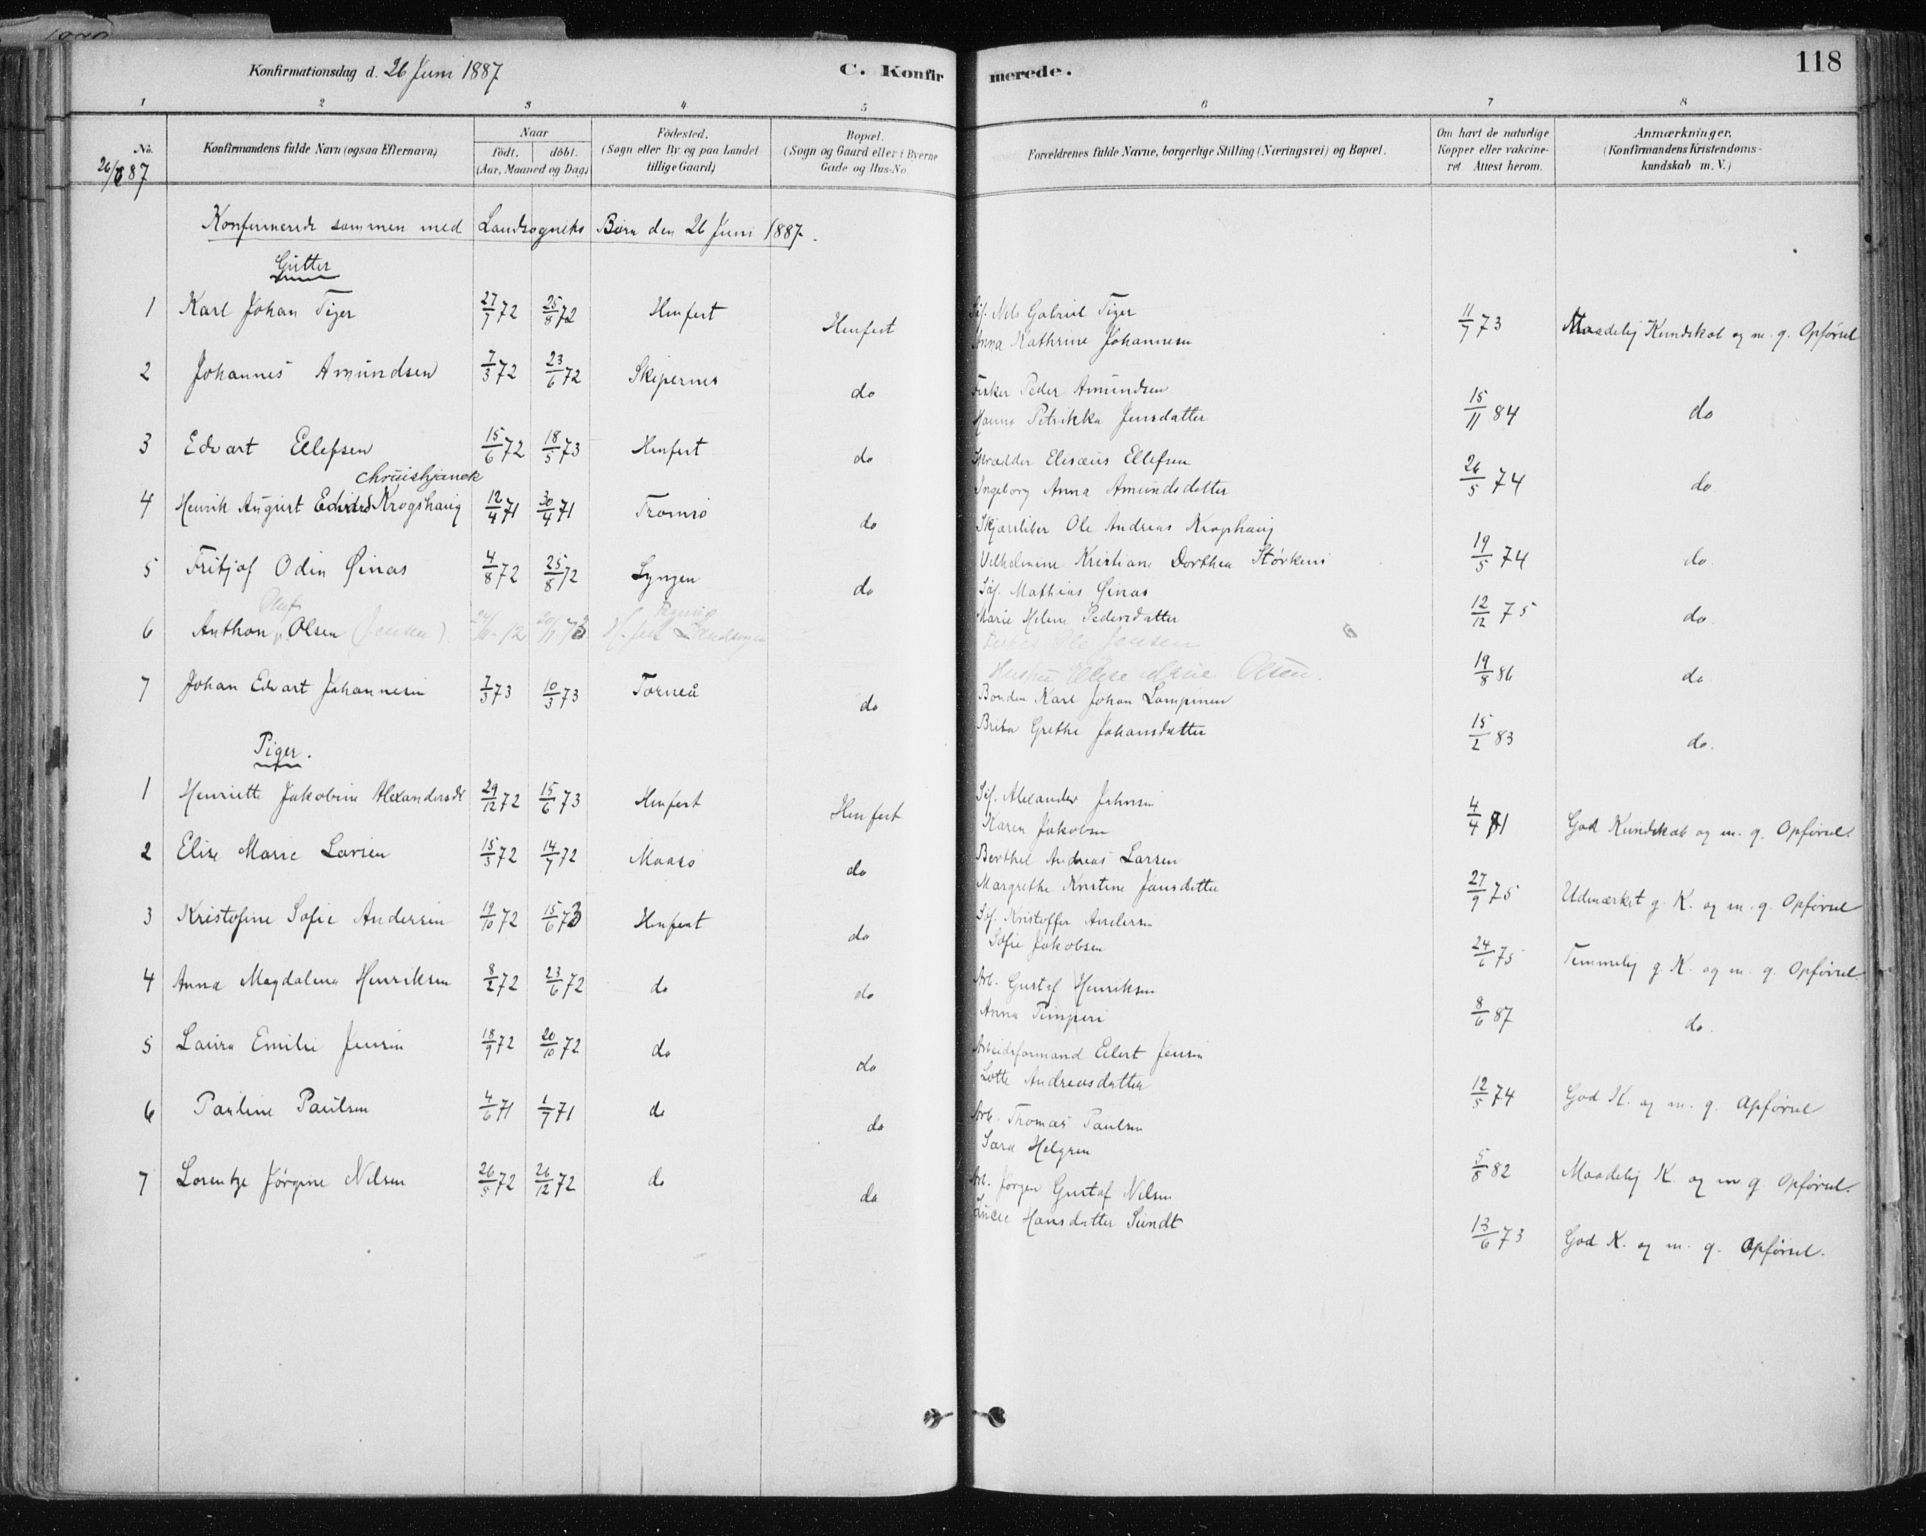 Konfirmationsdag d. 26 Juni 1887 C. Konfirmerede. 118
1 2 3 4 5 6 7 8
No. Konfirmandens fulde Navn (ogsaa Efternavn) Naar födt. döbt. (Aar, Maaned og Dag) Födested. (Sogn eller By og paa Landet tillige Gaard) Bopæl. (Sogn og Gaard eller i Byerne Gade og Hus-No. Forældrenes fulde Navne, borgerlige Stilling (Næringsvei) og Bopæl. Om havt de naturlige Kopper eller vakcineret. Attest herom. Anmærkninger. (Konfirmandens Kristendomskundskab m. V.)
26/6 87
Konfirmerede sammen med Landsognets Børn den 26 Juni 1887.
Gutter
1 Karl Johan Tiger 27/7 72 25/8 72 Hmfest Hmfest Søf. Nels Gabriel Tiger
Anna Kathrine Johannesen 11/7 73 Maadelig Kundskab og m. g. Opførsel
2 Johannes Amundsen 7/3 72 23/6 72 Skipernes do Fisker Peder Amundsen
Hanna Petrikka Jensdatter 15/11 84 do
3 Edvart Ellefsen 15/6 72 18/5 73 Hmfest do Skrædder Elisæus Ellefsen
Ingeborg Anna Amundsdatter 26/5 74 do
4 Henrik August Edvard Krogshaug 12/4 71 30/4 71 Tromsø do Skjærsliber Ole Andreas Krogshaug
Vilhelmine Kristiane Dorthea Størkens 19/5 74 do.
5 Fritjof Odin Øinas 4/8 72 25/8 72 Lyngen do Søf. Mathias Øinas
Marie Helene Pedersdatter 12/12 75 do.
6 Anthon Oluf Olsen (Jensen) H.fest Landsogn Ole Jensen
Hustru Elise Marie Olsen. 19/8 86 do
7 Johan Edvart Johannesen 7/3 73 10/3 73 Torneå do Bonden Karl Johan Lampinen
Brita Grethe Johansdatter 15/2 83 do.
Piger.
1 Henriette Jakobine Alexandersdt 29/12 72 15/6 73 Hmfest Hmfest Søf. Alexander Johnsen
Karen Jakobsen 4/4 81 God Kundskab og m. g. Opførsel.
2 Elise Marie Larsen 15/3 72 14/7 72 Maasø do Berthel Andreas Larsen
Margrethe Kristine Jansdatter 27/9 75 Udmærket g. K. og m. g. Opførsel
3 Kristofine Sofie Andersen 19/10 72 15/6 73 Hmfest do Søf. Kristoffer Andersen
Sofie Jakobsen 24/6 75 Temmelig g. K. og m. g. Opførsel
4 Anna Magdalena Henriksen 8/2 72 23/6 72 do do Arb. Gustaf Henriksen
Anna Timperi 8/6 87 do.
5 Laura Emilie Jensen 18/9 72 20/10 72 do do Arbeidsformand Eilert Jensen
Lotte Andreasdatter 12/5 74 God K. og m. g. Opførsel
6 Pauline Paulsen 4/6 71 1/7 71 do do Arb. Thomas Paulsen
Sara Helgren 5/8 82 Maadelig K. og m g Opførsel.
7 Lorentze Jørgine Nilsen 26/5 72 26/12 72 do do Arb. Jørgen Gustaf Nilsen
Hansdatter Sundt 13/6 73 God K. og m. g. Opførsel.